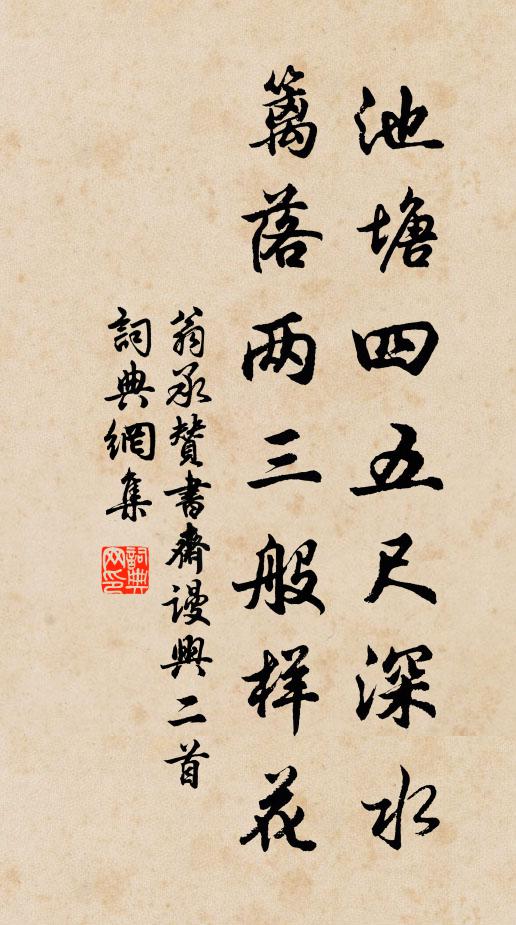 池塘四五尺深水
篱落两三般样花
翁承赞書齋謾興二首
詞典網集
詞典網印